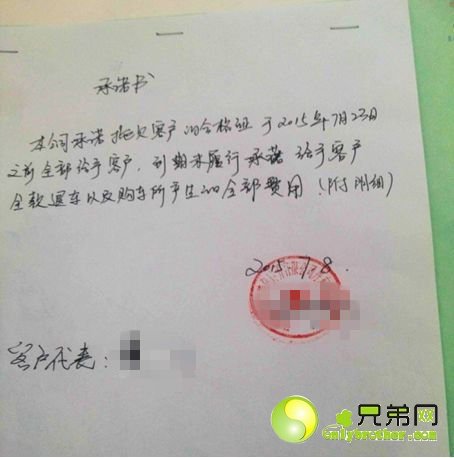 承诺书
本公司承诺拖欠客户的合格证于2015年7月23日
之前全部给予客户，到期未履行承诺给予客户
全款退车以及购车所产生的全部费用（附明细）
2015.7.8.
客户代表：
兄弟网